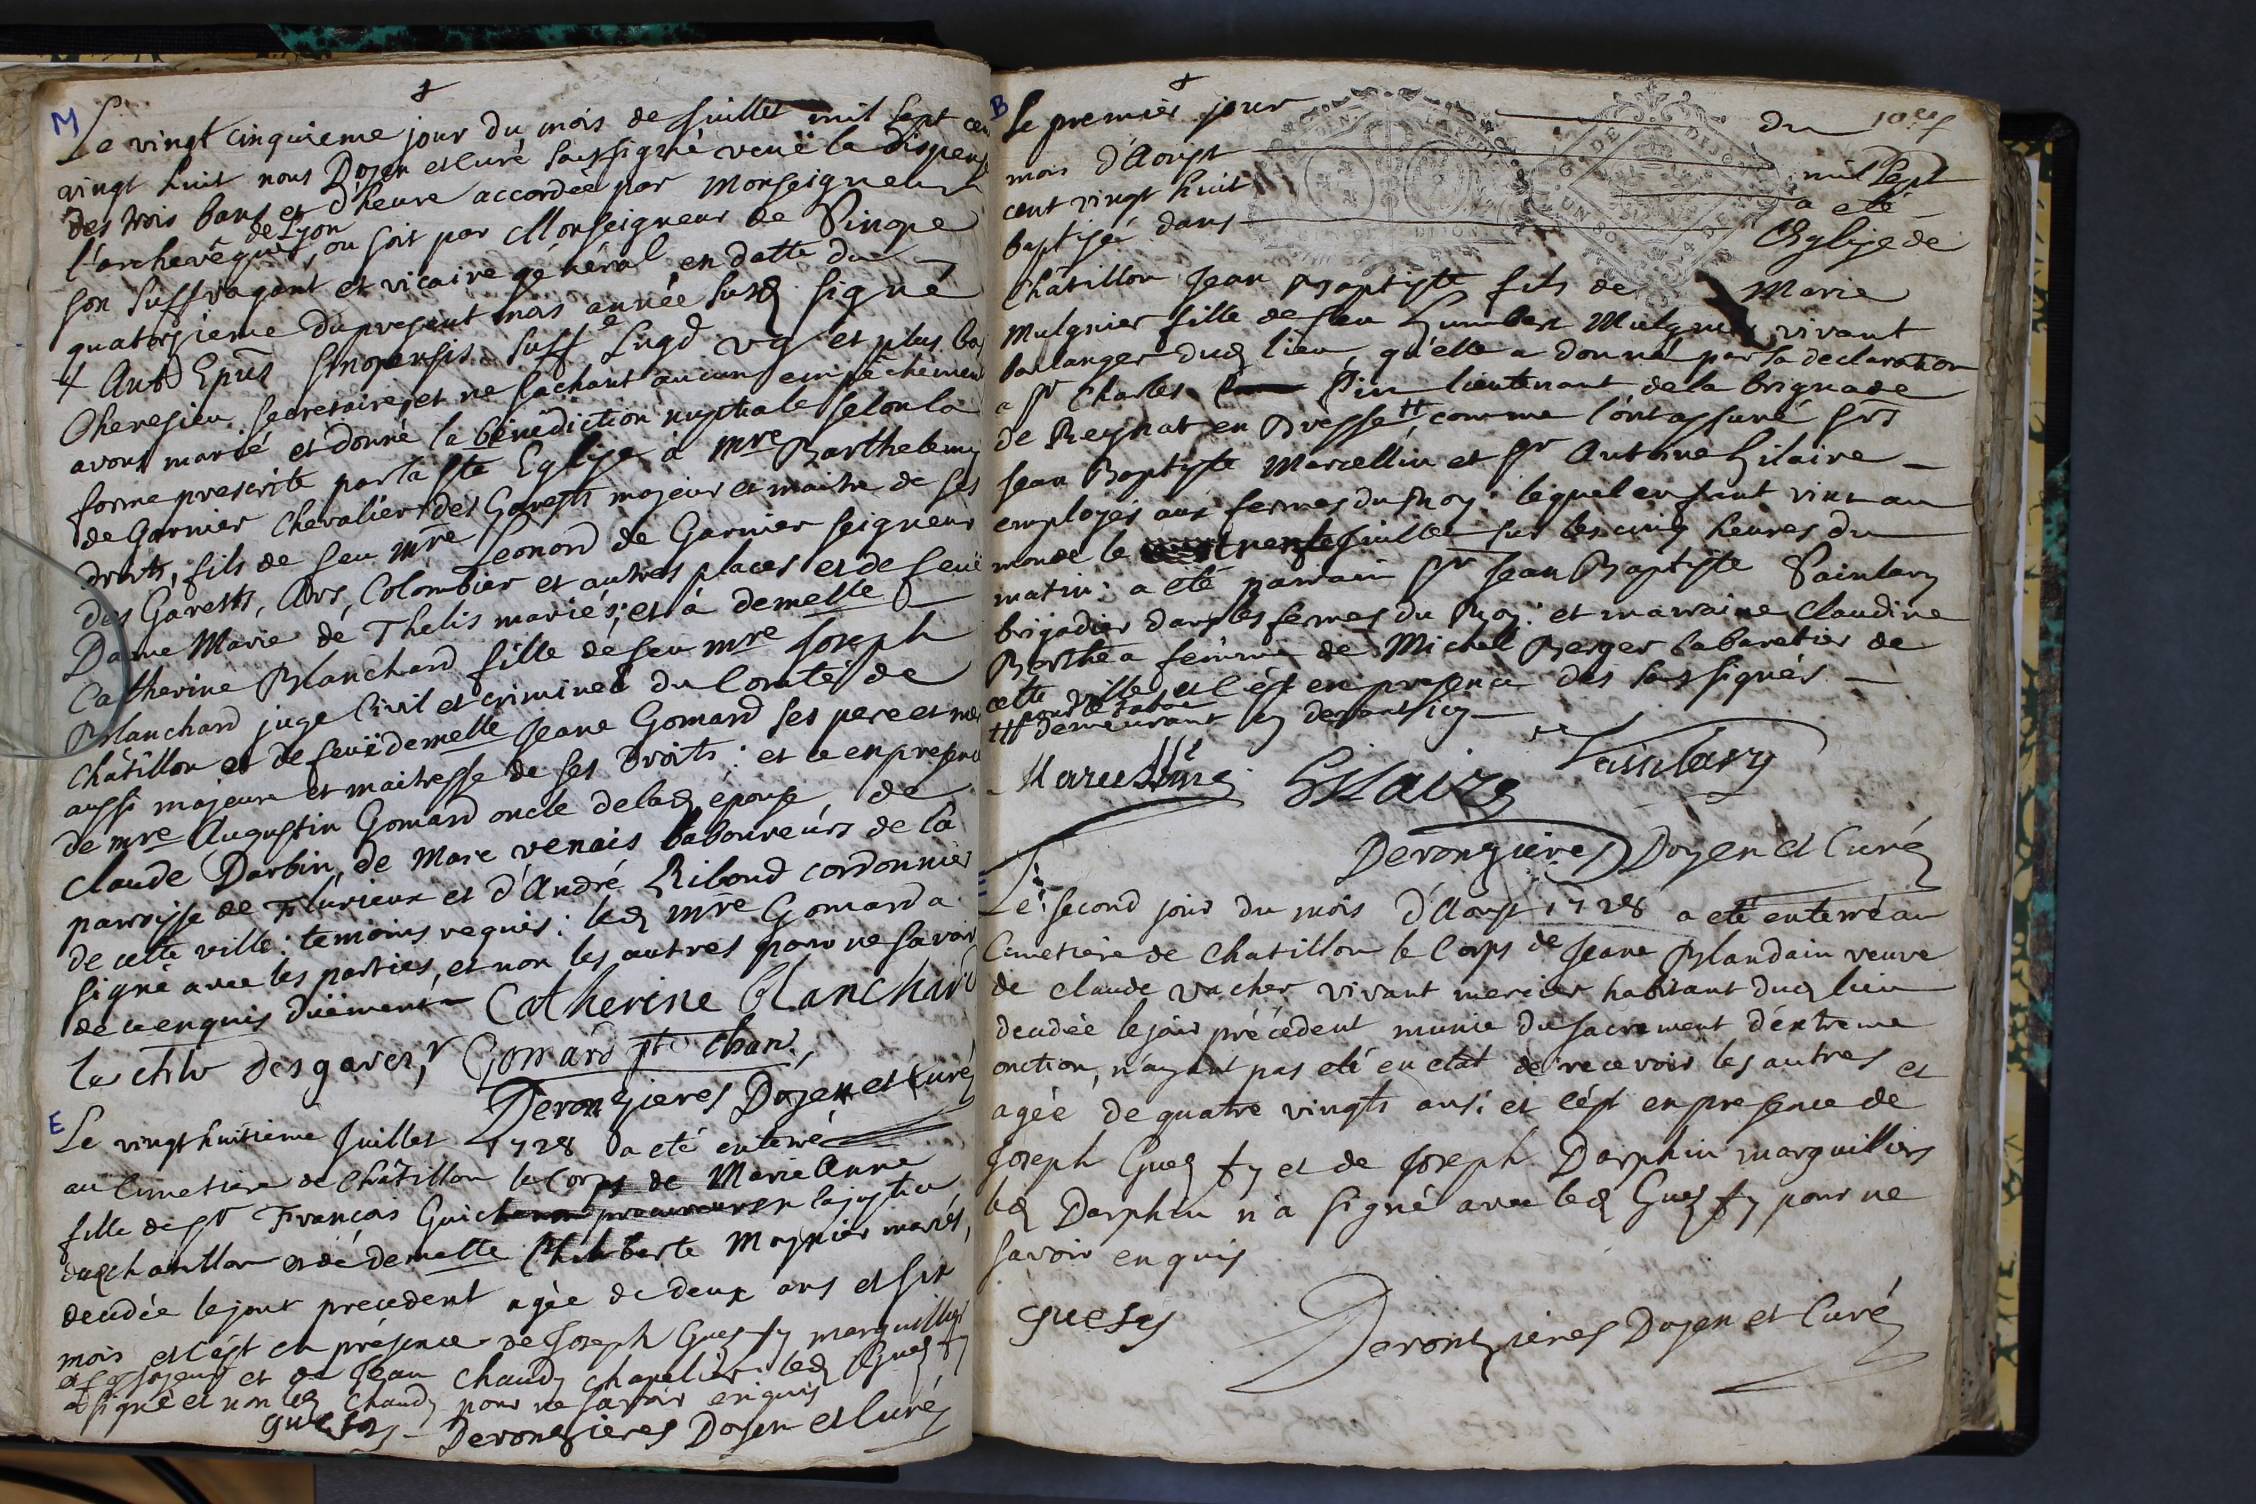 M
Le vingt cinquieme jour du mois de Juillet mil sept cen
vingt huit nous Doyen et Curé soussigné veuë la dispense
des trois bans et d'heure accordée par Monseigneur
l'archevêque de Lyon, ou soit par Monseigneur de Sinope
son suffragant et vicaire général en datte du
quatorzieme du present mois année susd signé
+ Ant Epūs Sinopensis suff Lugd vg et plus bas
secretaire, et ne sachant aucun empêchement
avons marié et donné la bénédiction nuptiale selon la
forme prescrite par la ste Eglise à mre Barthelemy
de Garnier Chevalier des Garests majeur et maitre de ses
droits, fils de feu mre Leonord de Garnier seigneur
des Garests, Ars, Colombier et autres places et de feuë
Dame Marie de Thelis mariés; et à demelle
Catherine Blanchard fille de feu mre Joseph
Blanchard juge Civil et criminel du Comté de
Châtillon et de feuë demelle Jeane Gomard ses pere et mere
aussi majeure et maitresse de ses droits: et ce en presence
de mre Augustin Gomard oncle de lad épouse, de
Claude Darbin, de Marc venais laboureurs de la
parroisse de Flurieux et d'André Riboud cordonnier
de cette ville: temoins requis: led mre Gomard a
signé avec les parties, et non les autres pour ne savoir
de ce enquis duëment Catherine blanchard
le chlr desgarets, Gomard ptre chan.
Deronzieres Doyen et Curé
E
Le vingt huitieme Juillet 1728 a eté enterré
au Cimetiere de Châtillon le Corps de Marie Anne
fille de sr François Guichenon procureur en la justice
dud chatillon et de demelle Philiberte Moynier mariés,
decedée le jour precedent agée de deux ans et six
mois et c'est en présence de Joseph Gues fy marguillier
et fossoyeur et de Jean Chaudy chapelier led Gues fy
a signé et non led Chaudy pour ne savoir enquis
guesfy Deronzieres Doyen et Curé
B
Le premier jour du
mois d'Aoust mil sept
cent vingt huit a eté
baptisé dans l'Eglise de
Châtillon Jean Baptiste fils de Marie
Mulgnier fille de feu Humbert Mulgnier, vivant
boulanger dud lieu, qu'elle a donné par sa declaration
a sr Charles Pin lieutenant de la brignade
de Reynat en Bresse ++, comme l'ont assuré srs
Jean Baptiste Marcellin et sr Antoine Hilaire
employés aux fermes du Roy: lequel enfant vint au
monde le trente Juillet sur les cinq heures du
matin: a eté parrain sr Jean Baptiste Sainlary
brigadier dans les fermes du Roy: et marraine Claudine
Berthea femme de Michel Berger Cabaretier de
cette ville, et c'est en presence des soussignés
++ pour le Tabac
demeurant cy devant icy
Marcellin Hilaire Sainlary
Deronzieres Doyen et Curé
E
Le second jour du mois d'Aoust 1728 a eté enterré au
Cimetiere de Chatillon le Corps de Jeane Blandain veuve
de Claude Vacher vivant mercier habitant dud lieu
decedée le jour précédent munie du sacrement d'extreme
onction, n'ayant pas eté en etat de recevoir les autres et
agée de quatre vingts ans: et c'est en presence de
Joseph Gues fy et de Joseph Darphin marguilliers
led Darphin n'a signé avec led Gues fy pour ne
savoir enquis
guesfy Deronzieres Doyen et Curé